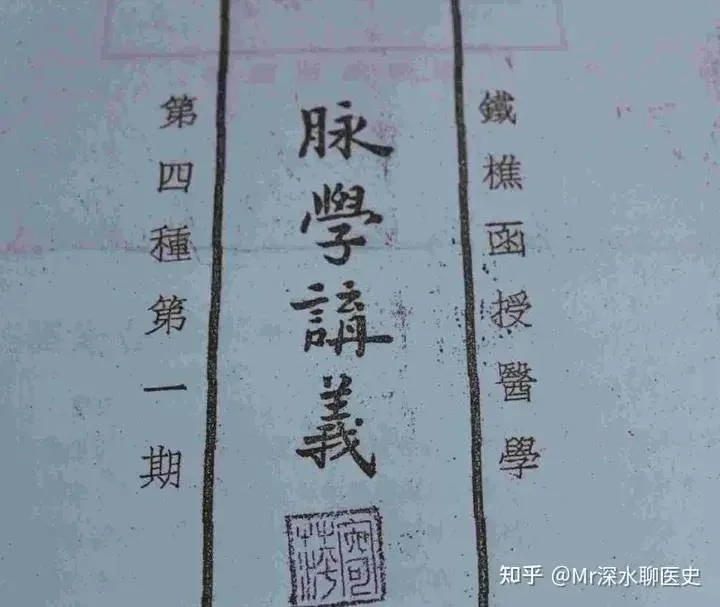 鐵樵函授醫學
脉學講義
第四種第一期
知乎 @Mr深水聊医史